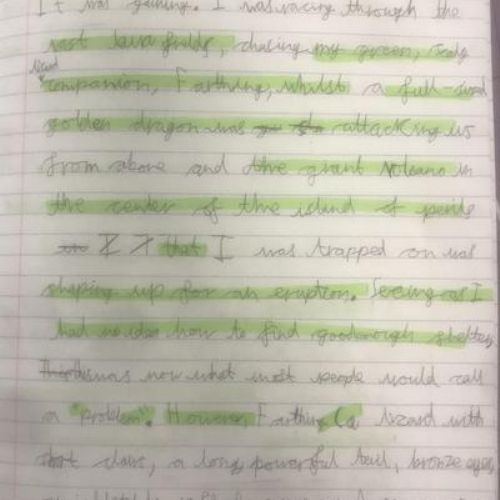 It was gaining. I was racing through the
vast lava fields, chasing my green, scaly
lizard
companion, Farthing, whilst a full-sized
golden dragon was attacking us
from above and the giant volcano in
the center of the island of perils
that I was trapped on was
shaping up for an eruption. Seeing as I
had no idea how to find good enough shelter,
this was now what most people would call
a "problem". However, Farthing (a lizard with
claws, a long powerful tail, bronze eyes,